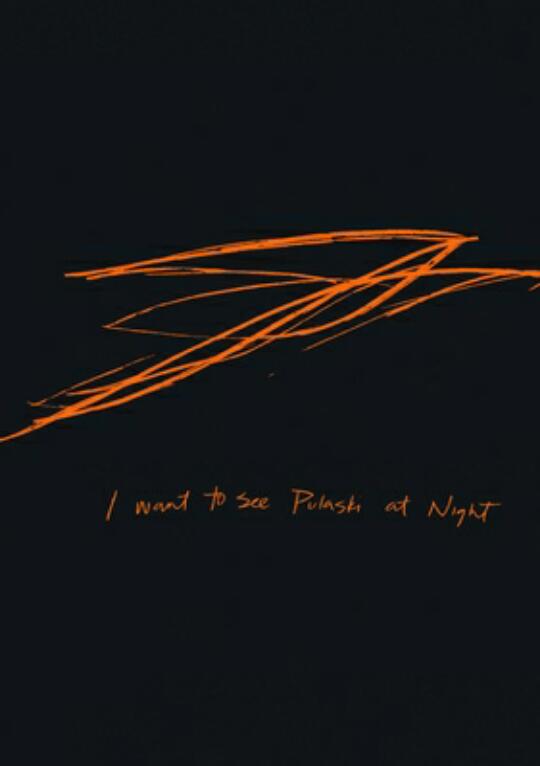 I want to see Pulaski at Night